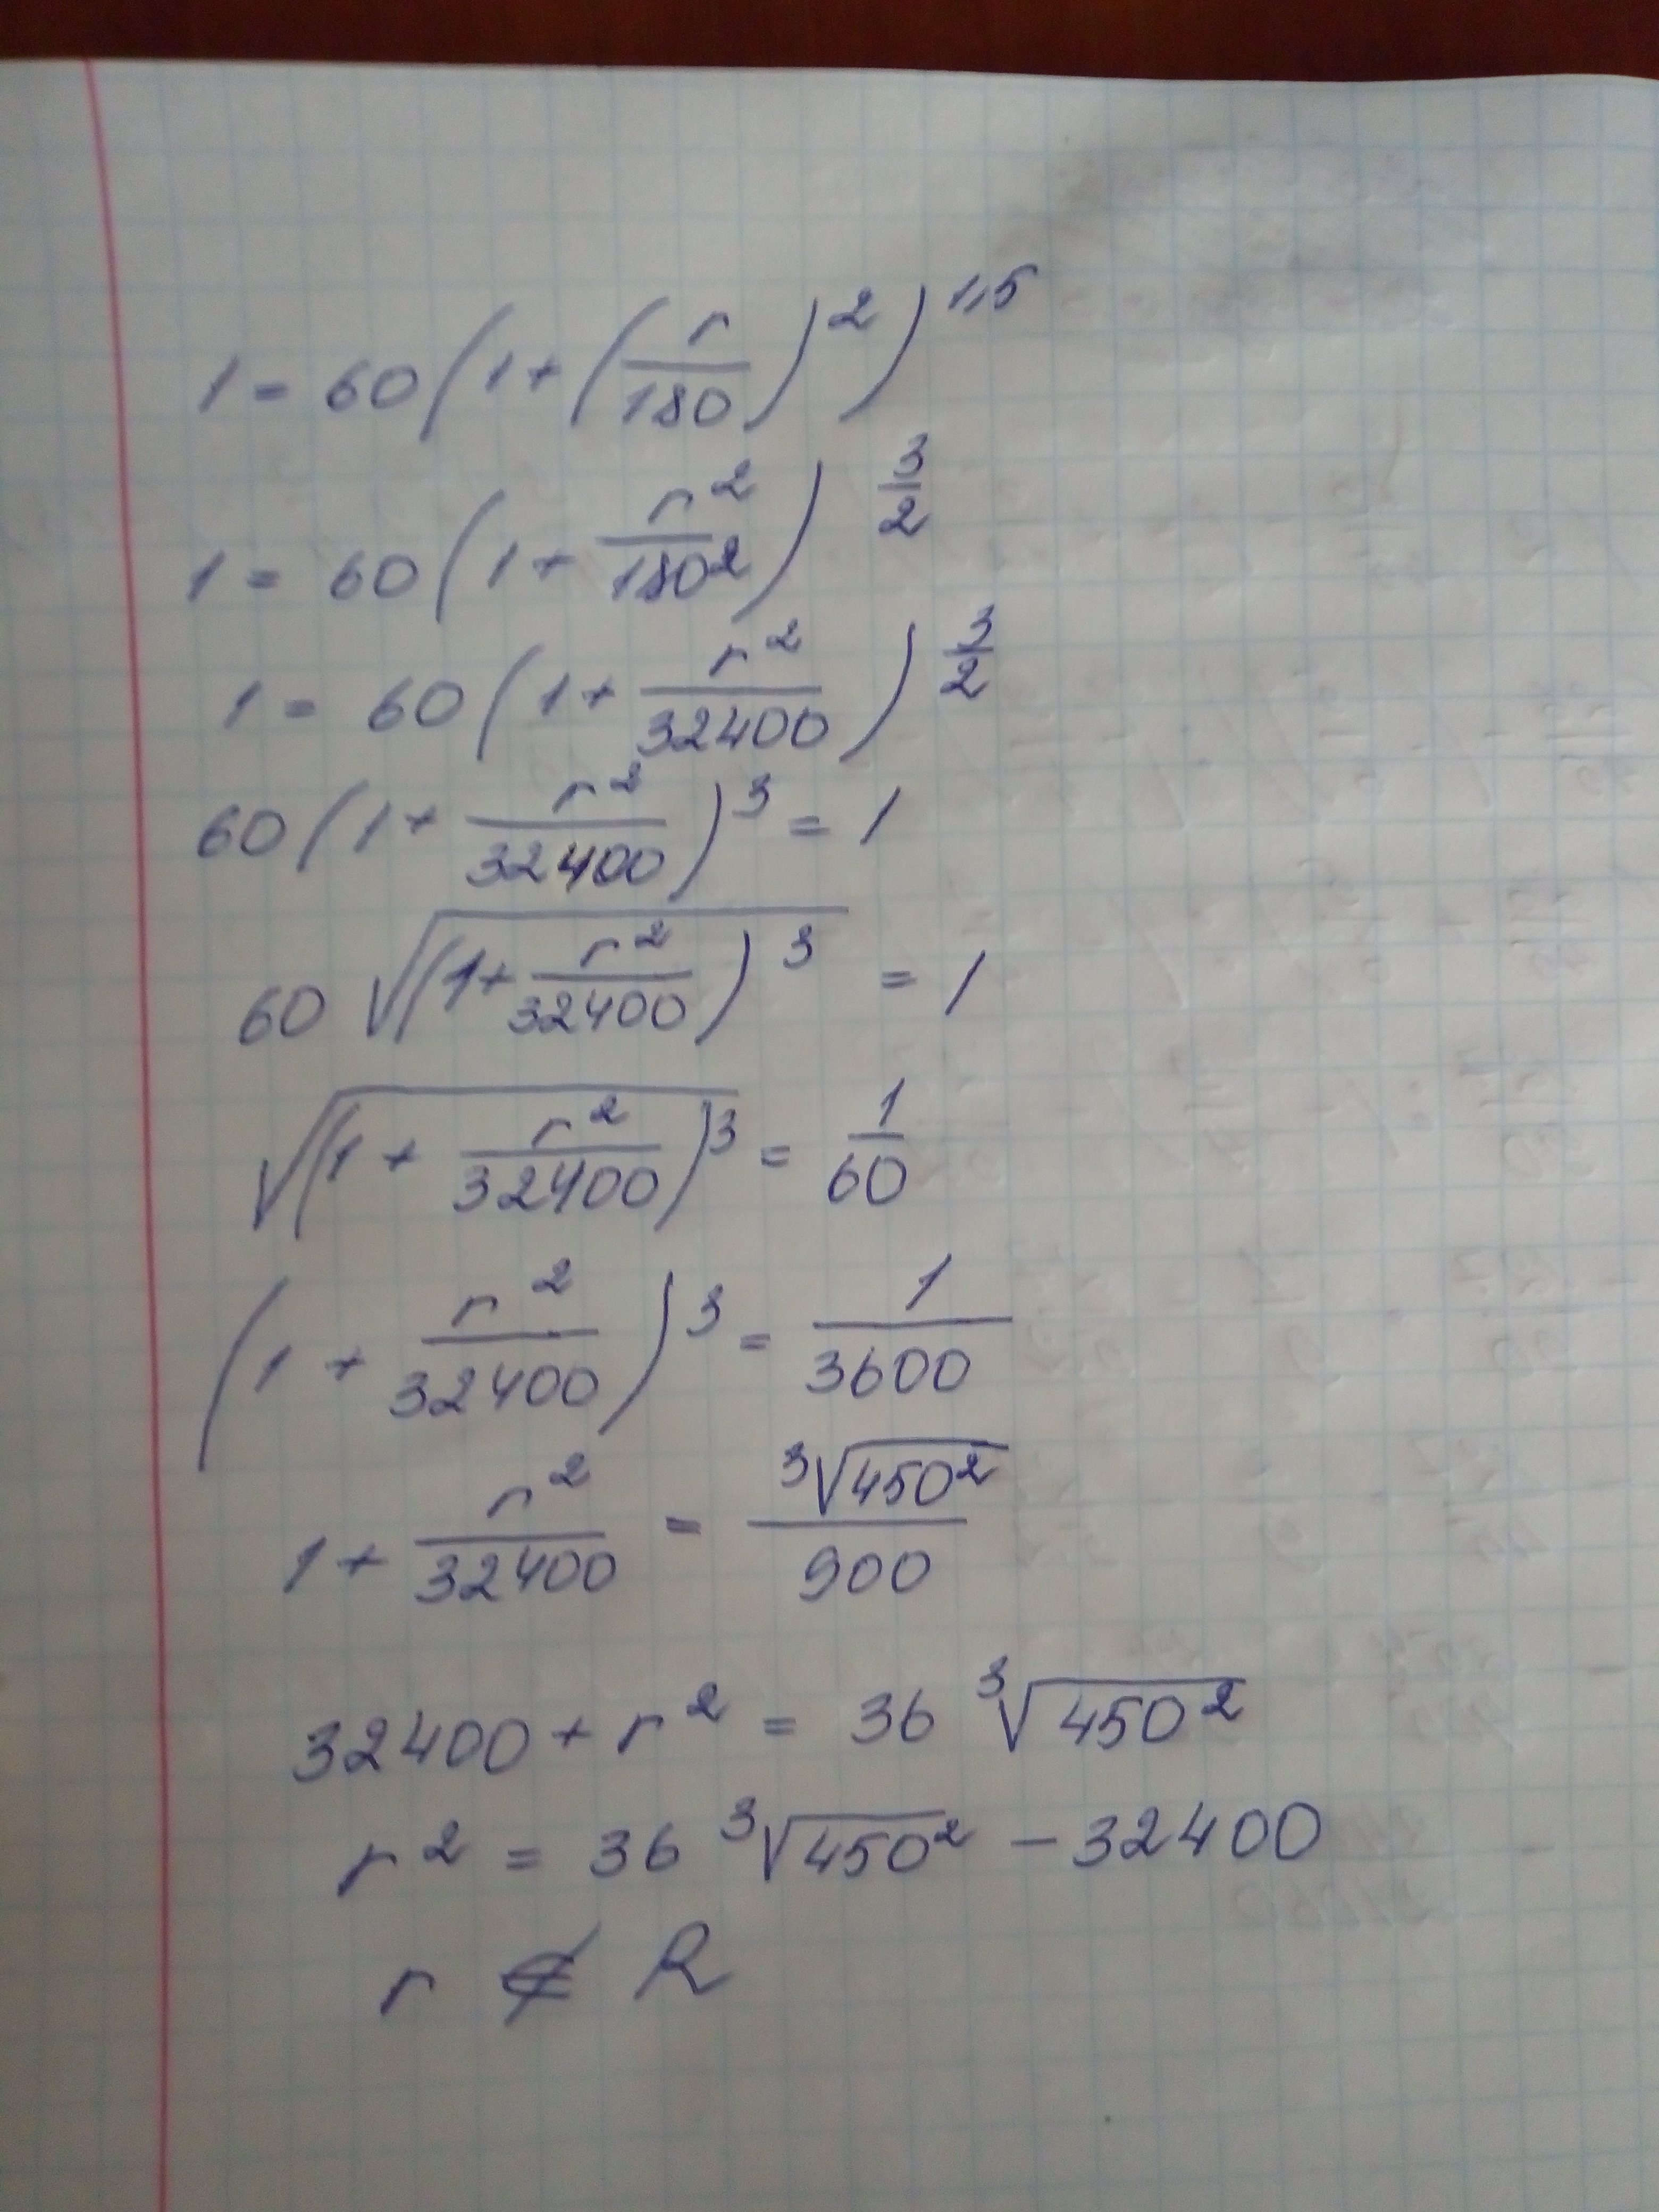 1 = 60 (1 + (r/180)^2)^1,5
1 = 60 (1 + r^2/180^2)^3/2
1 = 60 (1 + r^2/32400)^3/2
60 (1 + r^2/32400)^3 = 1
60 √((1 + r^2/32400)^3) = 1
√((1 + r^2/32400)^3) = 1/60
(1 + r^2/32400)^3 = 1/3600
1 + r^2/32400 = ³√(450^2)/900
32400 + r^2 = 36 ³√(450^2)
r^2 = 36 ³√(450^2) - 32400
r ∉ R